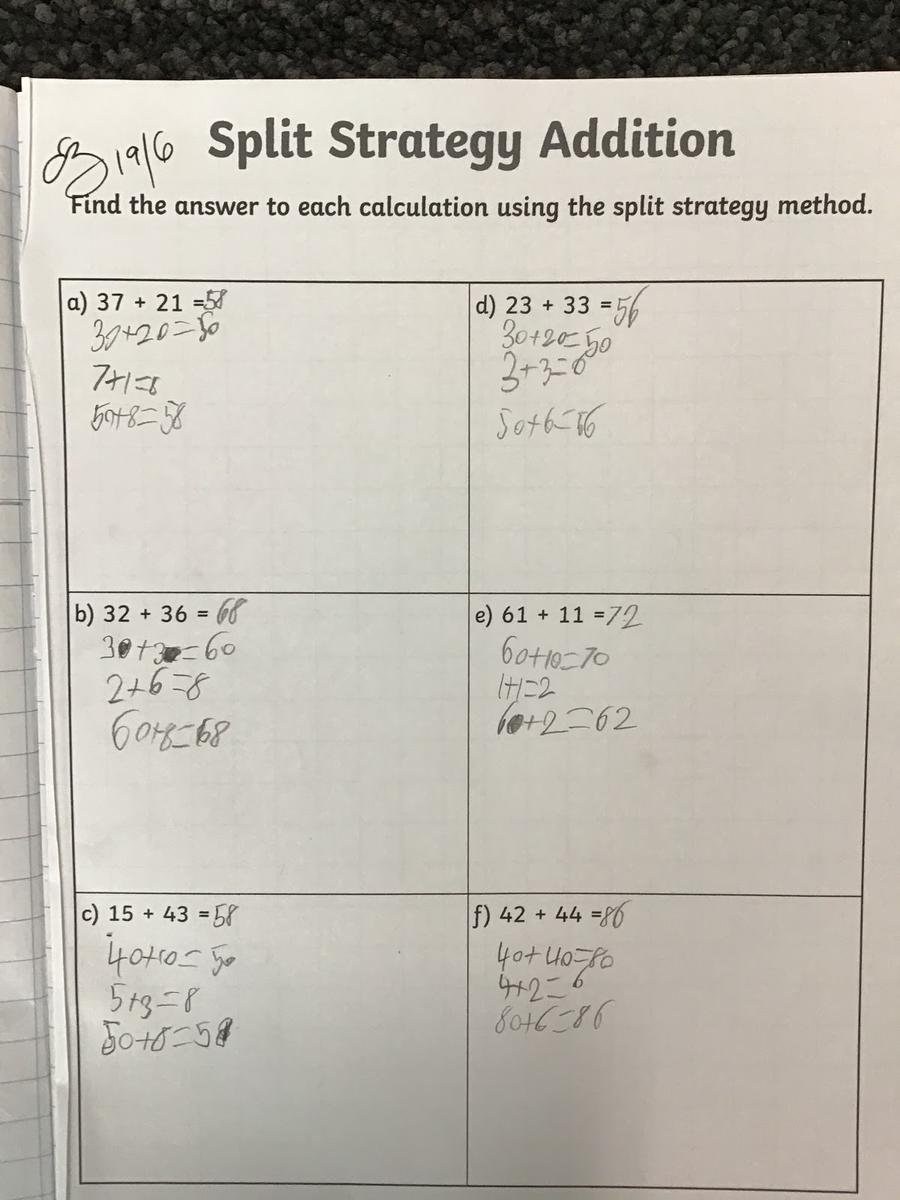 19/6
Split Strategy Addition
Find the answer to each calculation using the split strategy method.
a) 37 + 21 =58
30+20=50
7+1=8
50+8=58
b) 32 + 36 = 68
30+30=60
2+6=8
60+8=68
c) 15 + 43 =58
40+10=50
5+3=8
50+8=58
d) 23 + 33 =56
30+20=50
3+3=6
50+6=56
e) 61 + 11 =72
60+10=70
1+1=2
60+2=62
f) 42 + 44 =86
40+40=80
4+2=6
80+6=86